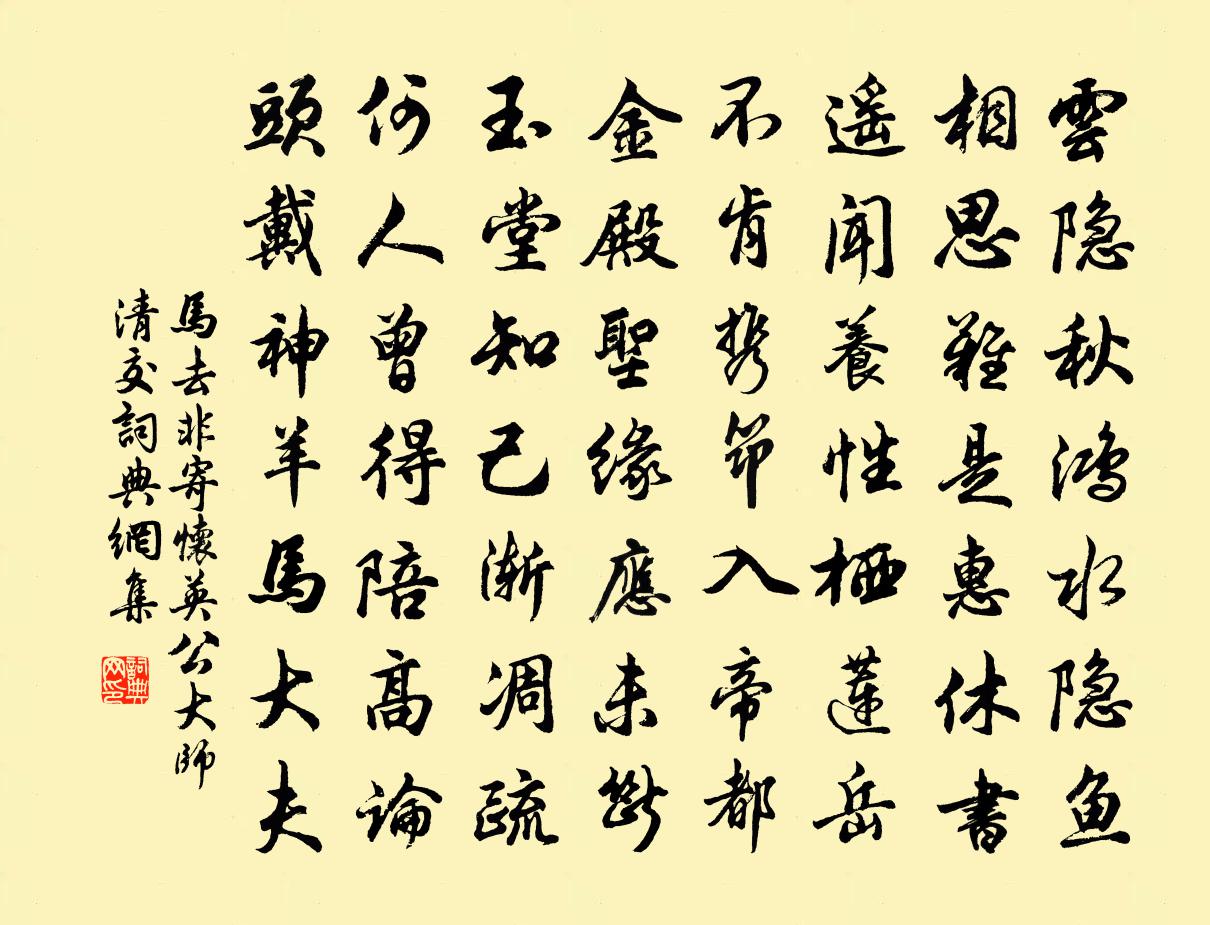 雲隐秋鸿水隐鱼
相思難是惠休書
遥聞養性栖蓮岳
不肯携笻入帝都
金殿聖缘應未斷
玉堂知己漸凋疏
何人曾得陪高論
頭戴神羊馬大夫
馬去非寄懷英公大師
清交詞典網集
詞典网印